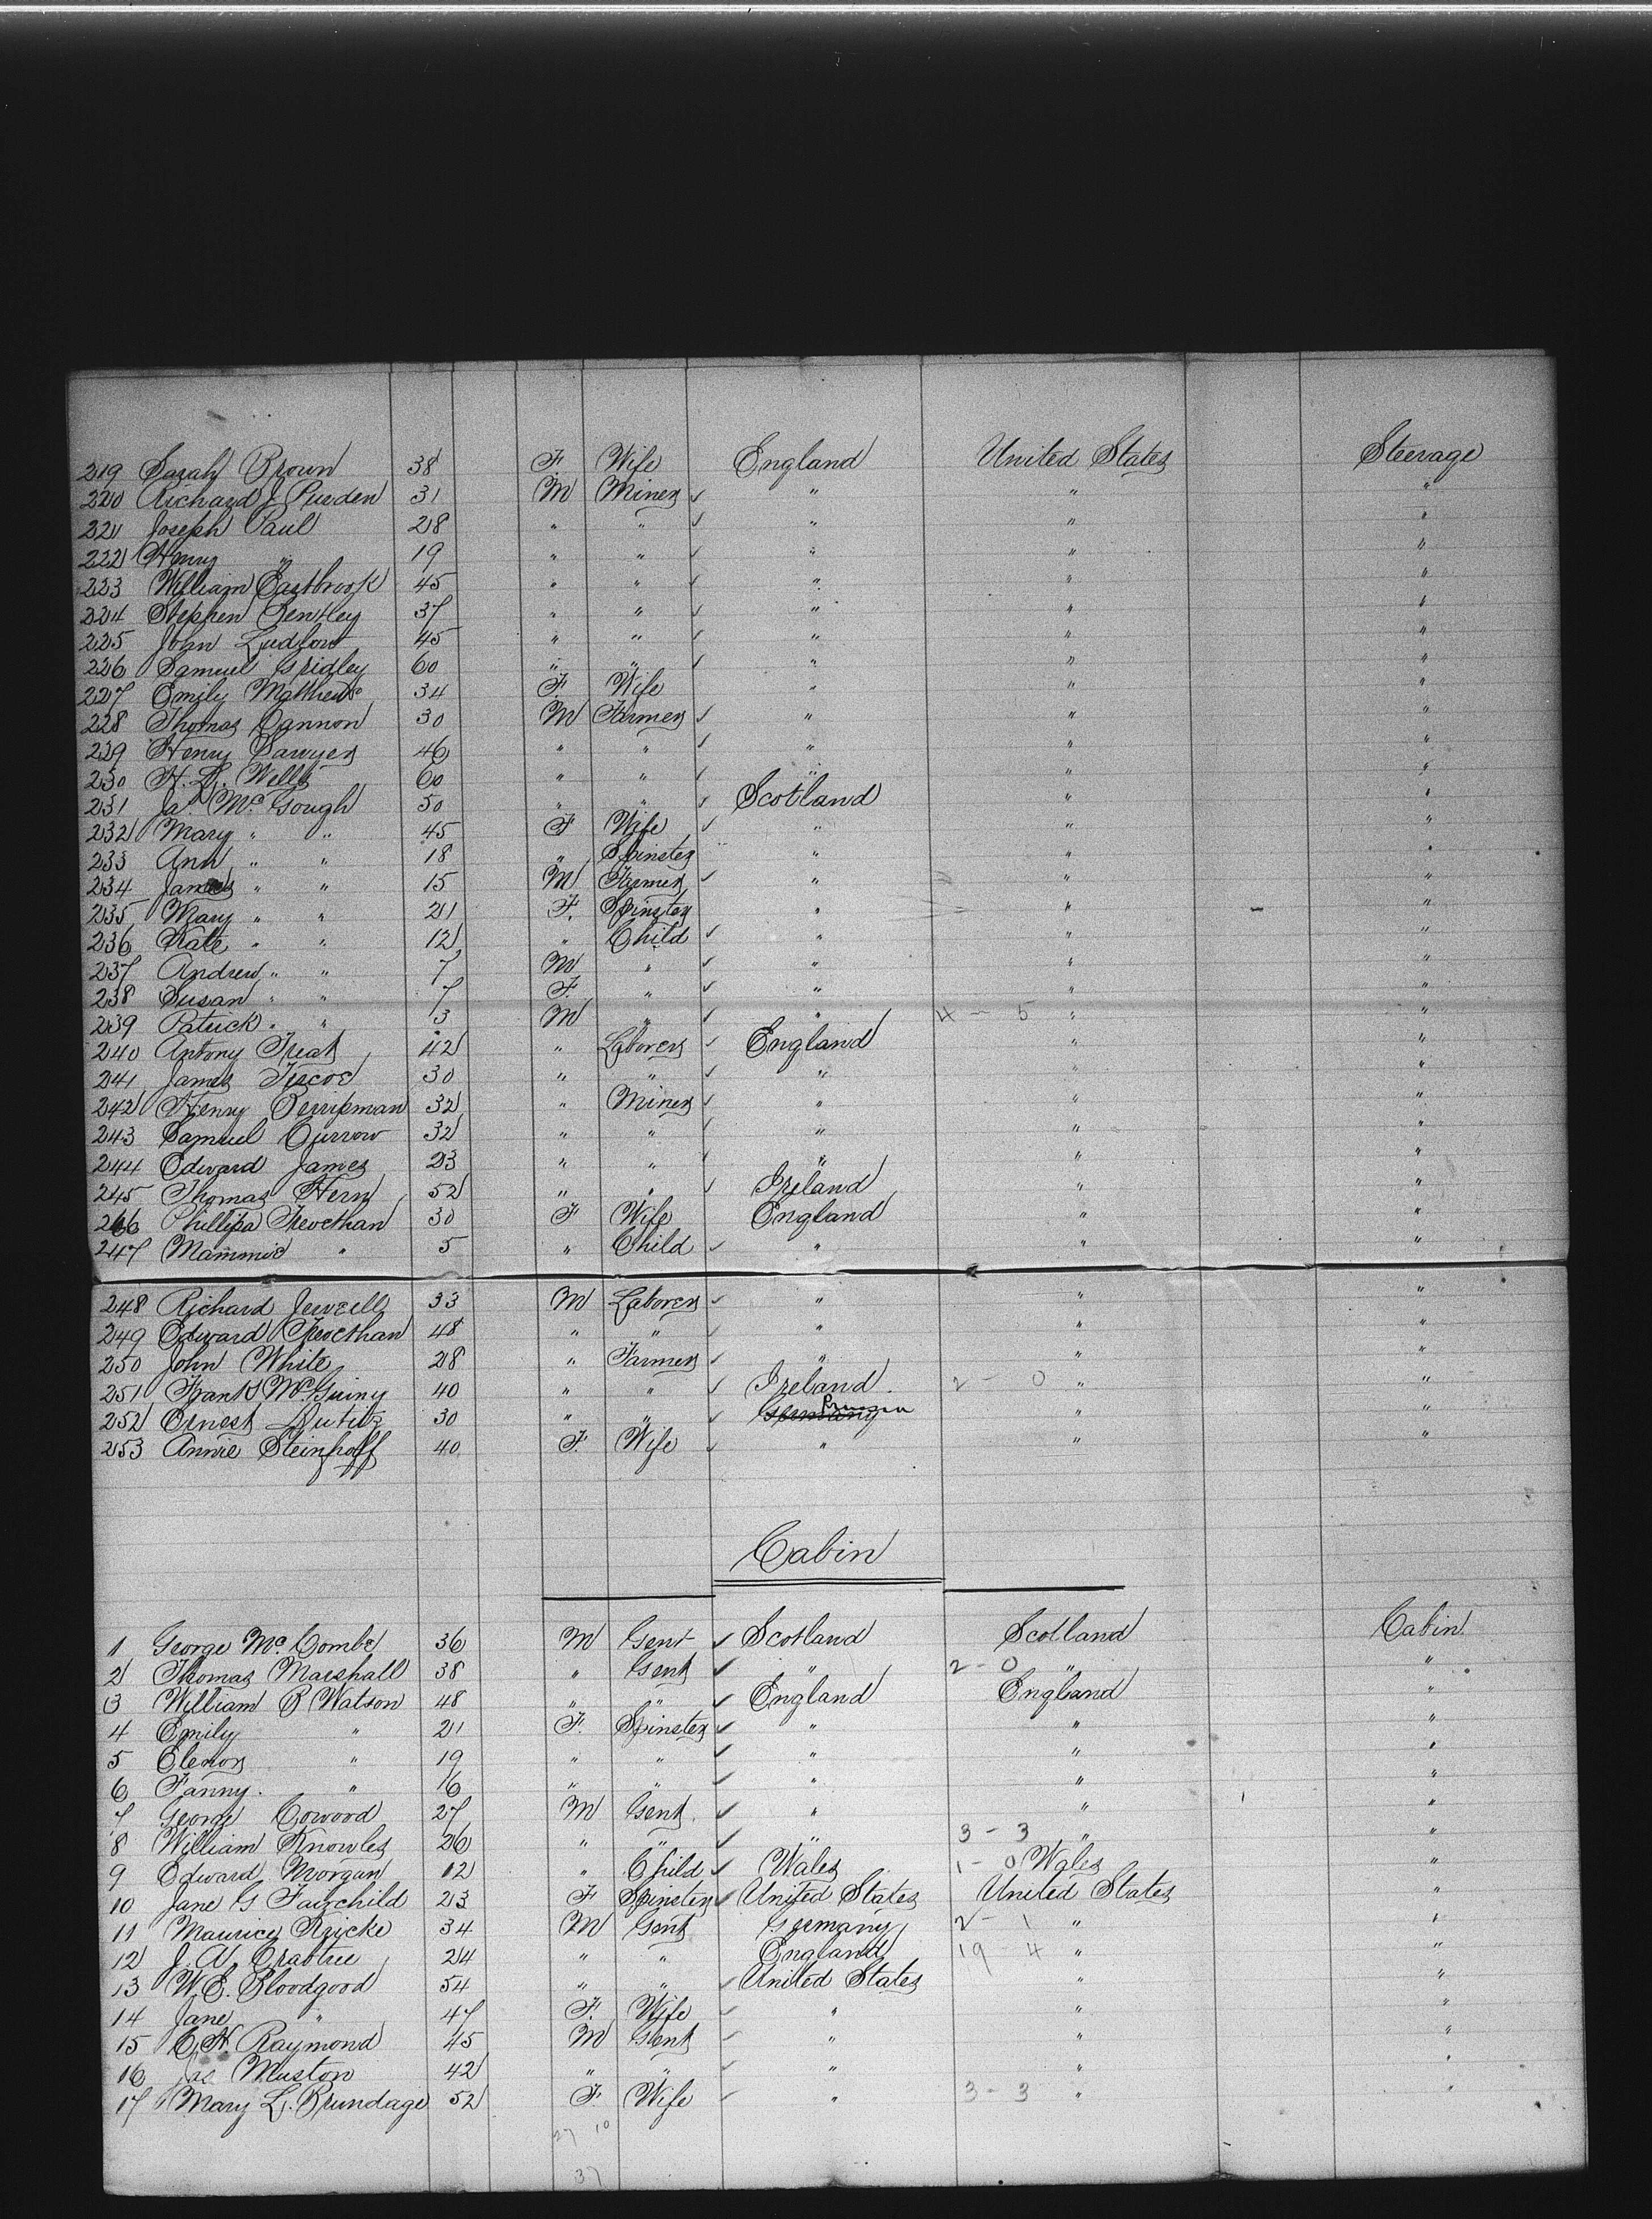 219 Sarah Brown 38 F. Wife England United States Steerage
220 Richard J. Purden 31 M Miner ✓ " " "
221 Joseph Paul 28 " " ✓ " " "
222 Henry " 19 " " ✓ " " "
223 William Eastbrook 45 " " ✓ " " "
224 Stephen Bentley 37 " " ✓ " " "
225 John Ludford 45 " " ✓ " " "
226 Samuel Grigley 60 " " ✓ " " "
227 Emily Mathews 34 F. Wife " " "
228 Thomas Cannon 30 M Farmer ✓ " " "
229 Henry Sawyer 46 " " ✓ " " "
230 H. L. Wells 60 " " ✓ " " "
231 Jas McGough 50 " " ✓ Scotland " "
232 Mary " " 45 F Wife ✓ " " "
233 Ann " " 18 " Spinster " " "
234 James " " 15 M Farmer ✓ " " "
235 Mary " " 21 F. Spinster " " "
236 Kate " " 12 " Child ✓ " " "
237 Andrew " " 7 M " ✓ " " "
238 Susan " " 7 F. " ✓ " " "
239 Patrick " " 3 M " ✓ " 4 - 5 " "
240 Antony Treat 42 " Laborer ✓ England " "
241 James Tiscoe 30 " " ✓ " " "
242 Henry Berripman 32 " Miner ✓ " " "
243 Samuel Currow 32 " " ✓ " " "
244 Edward James 23 " " ✓ " " "
245 Thomas Hern 52 " " ✓ Ireland " "
246 Phillipa Trevethan 30 F Wife England " "
247 Mammie " 5 " Child ✓ " " "
248 Richard Jewell 33 M Laborer ✓ " " "
249 Edward Trevethan 48 " " ✓ " " "
250 John White 28 " Farmer ✓ " " "
251 Frank McGuiny 40 " " ✓ Ireland. 2 - 0 " "
252 Ernest 30 " " ✓ Germany Prussia " "
253 Annie Steinhoff 40 F. Wife ✓ " " "
Cabin
1 George McCombe 36 M Gent ✓ Scotland Scotland Cabin
2 Thomas Marshall 38 " Gent ✓ " 2 - 0 " "
3 William B Watson 48 " " ✓ England England "
4 Emily " 21 F. Spinster ✓ " " "
5 Elenor " 19 " " ✓ " " "
6 Fanny. " 16 " " ✓ " " "
7 George Cowood 27 M Gent. ✓ " " "
8 William Knowles 26 " " ✓ " 3 - 3 " "
9 Edward Morgan 12 " Child ✓ Wales 1 - 0 Wales "
10 Jane G Fairchild 23 F Spinster ✓ United States United States "
11 Maurice Reicke 34 M Gent Germany 2 - 1 " "
12 J. A. Crabtree 24 " " England 19 - 4 " "
13 W. E. Bloodgood 54 " " ✓ United States " "
14 Jane " 47 F. Wife ✓ " " "
15 C. H. Raymond 45 M Gent ✓ " " "
16 Jas Muston 42 " " ✓ " " "
17 Mary L. Brundage 52 F. Wife ✓ " 3 - 3 " "
27 10
37